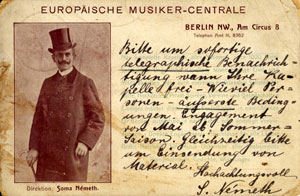 EUROPÄISCHE MUSIKER-CENTRALE
BERLIN NW., Am Circus 8
Telephon Amt III, 8052
Bitte um sofortige
telegraphische Benachrich-
tigung wann Ihre Ka-
pelle frei - Wieviel Per-
sonen - äusserste Bedin-
gungen. Engagement
von Mai ab. Sommer-
Saison. Gleichzeitig bitte
um Einsendung von
Material.
Hochachtungsvoll
S. Németh
Direktion: Soma Németh.